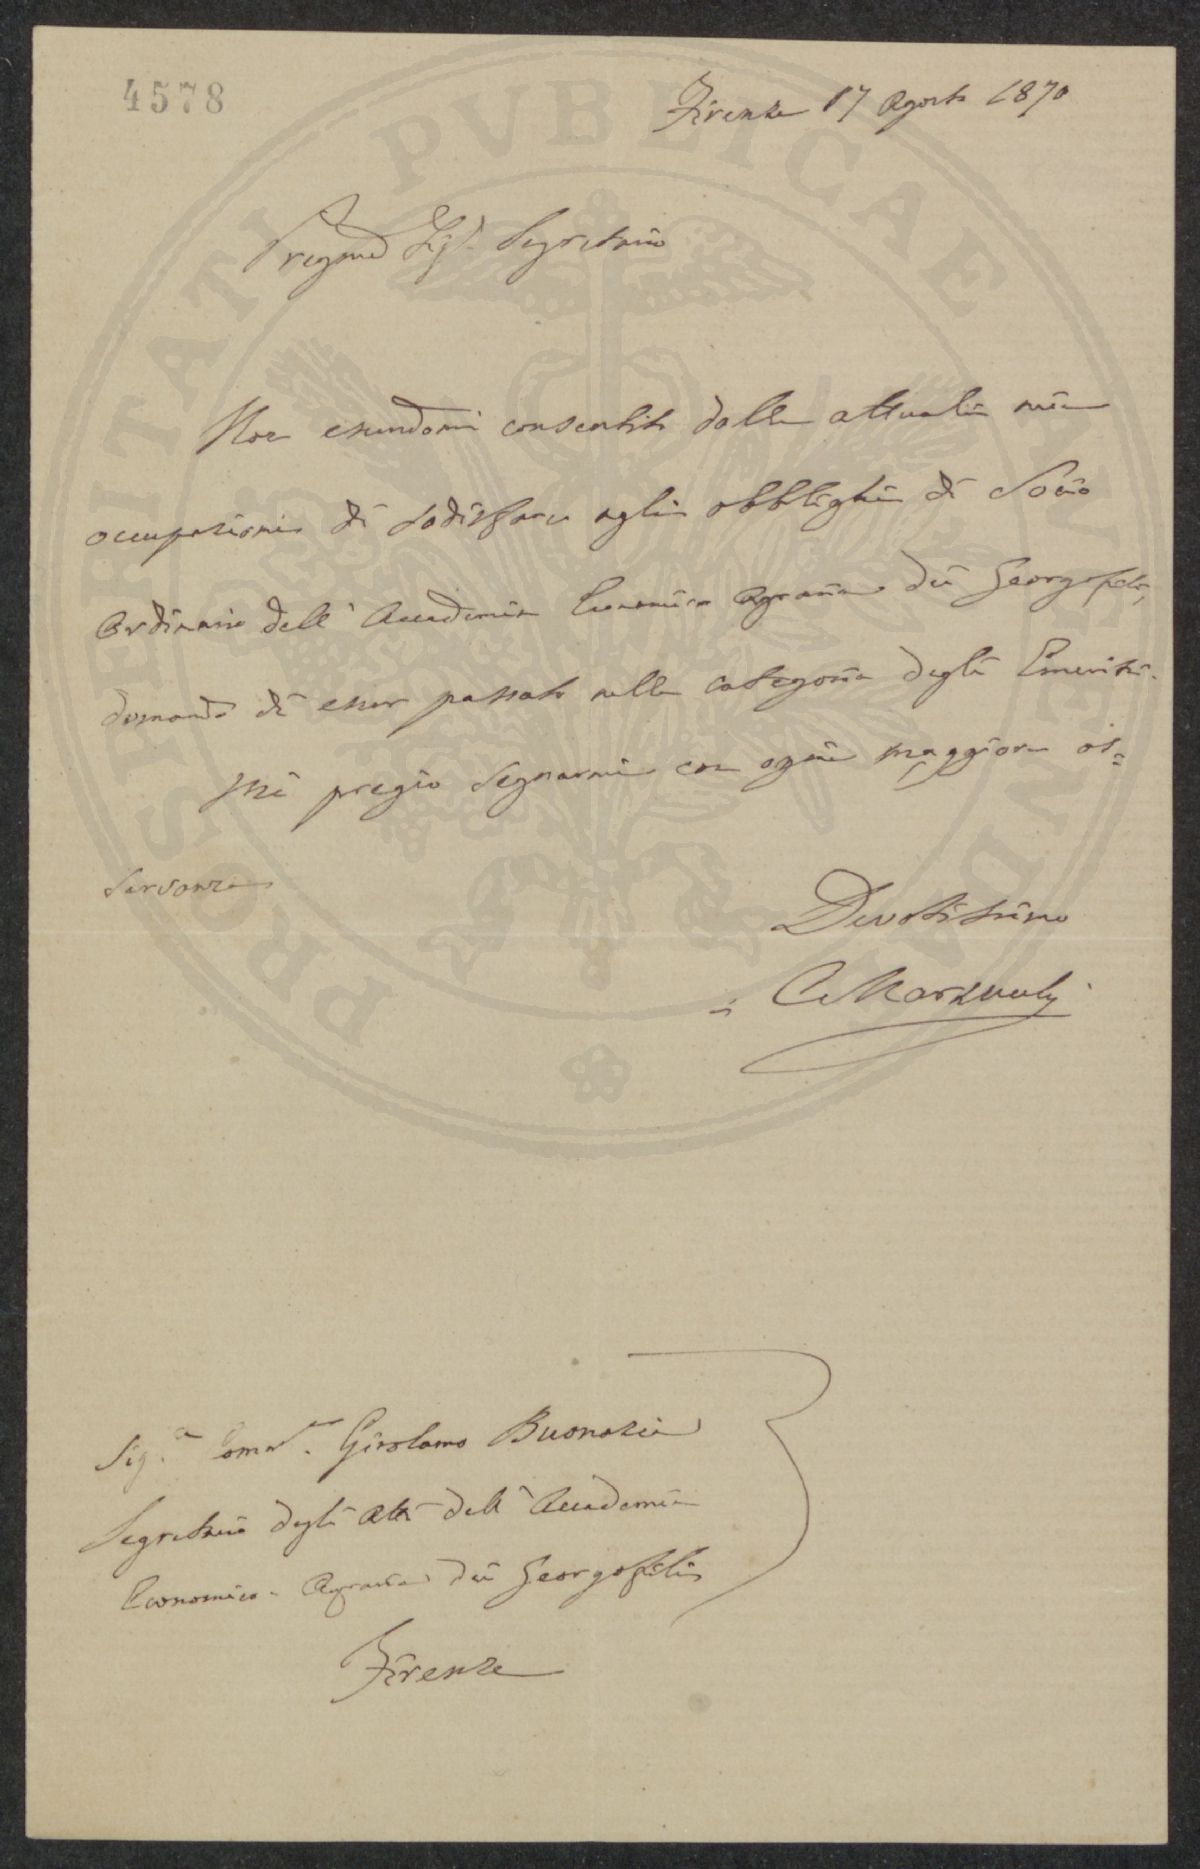 4578
Firenze 17 Agosto 1870
Pregmo Sigr. Segretario
Non essendomi consentito dalle attuali mie
occupazioni di sodisfare agli obblighi di Socio
Ordinario dell' Accademia Economico Agraria dei Georgofili,
domando di esser passato nella categoria degli Emeriti.
Mi pregio segnarmi con ogni maggiore os=
servanza
Devotissimo
C. Markucly
Sigr. Comr. Girolamo Buonazia
Segretario degli Atti dell' Accademia
Economico-Agraria dei Georgofili
Firenze
PROSPERITATI PVBLICAE AVGENDAE